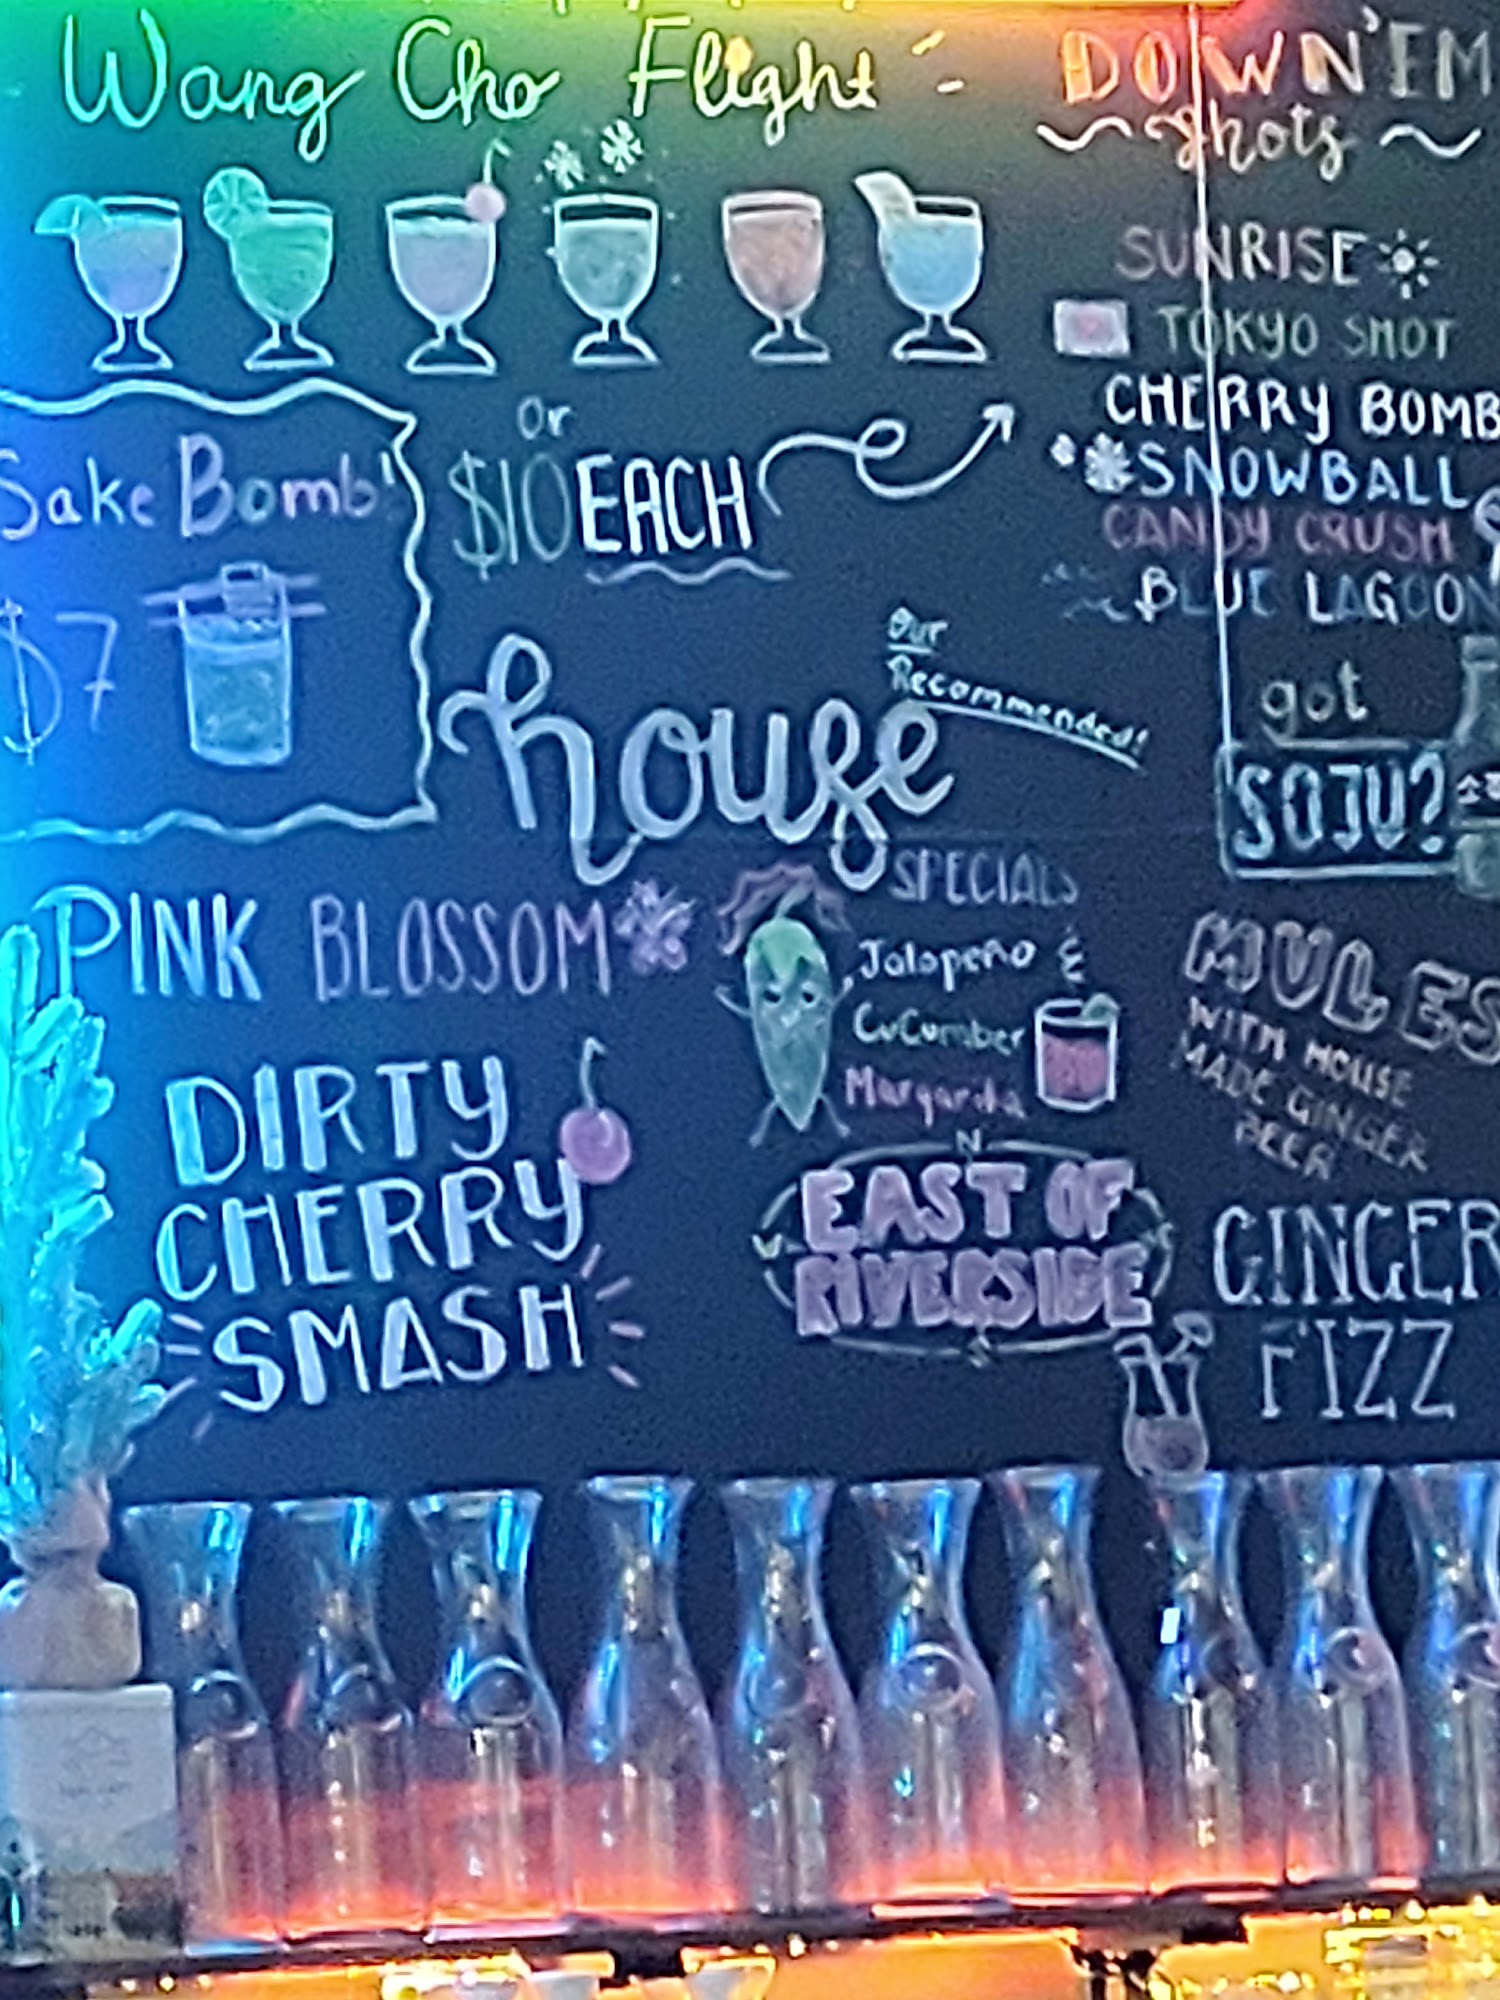 Wang Cho Flight
DOWN'EM
shots
SUNRISE
TOKYO SHOT
CHERRY BOMB
SNOWBALL
CANDY CRUSH
BLUE LAGOON
or
$10 EACH
Sake Bomb!
$7
Our
Recommended!
house
SPECIALS
got
SOJU?
PINK BLOSSOM
Jalapeño &
CuCumber
Margarita
MULES
WITH HOUSE
MADE GINGER
BEER
DIRTY
CHERRY
SMASH
N
EAST OF
RIVERSIDE
S
GINGER
FIZZ